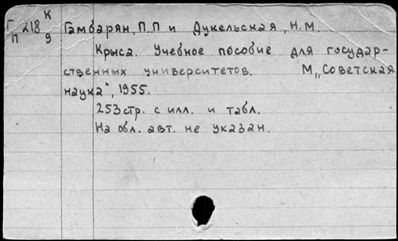 Г 218 К Гамбарян, П.П и Дукельская, Н.М.
П 9
Крыса. Учебное пособие для государ-
ственных университетов. М„Советская
наука", 1955.
253 стр. с илл. и табл.
На обл. авт. не указан.